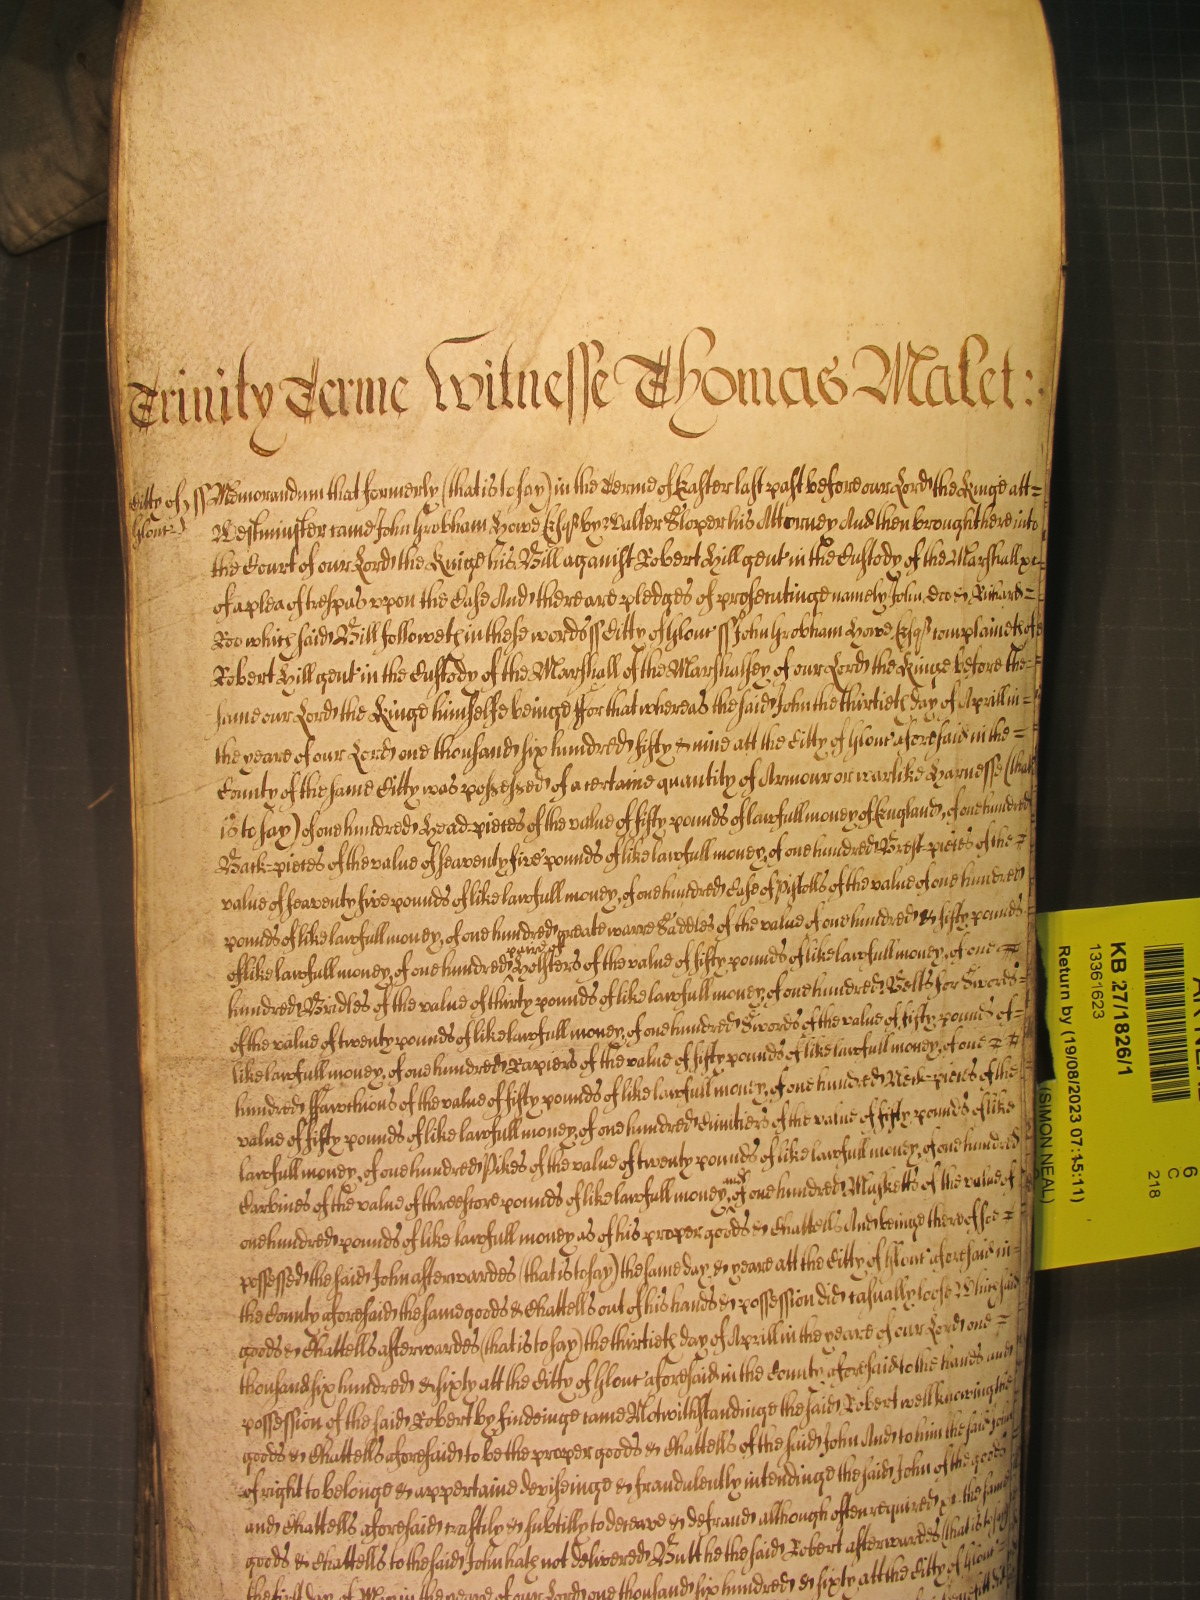 Trinity Terme Witnesse Thomas Malet:
Citty of ss Memorandum that formerly (that is to say) in the Terme of Easter last past before our Lord the Kinge att=
Glouc
Westminster came John Grobham Howe Esqr by Walter Sloper his Attorney And then brought there into
the Court of our Lord the Kinge his Bill against Robert Hill gent in the Custody of the Marshall &c
of a plea of trespas upon the Case And there are pledges of prosecutinge namely John Doe & Richard=
Roo which said Bill followeth in these words ss Citty of Glouc' ss John Grobham Howe Esqr complaineth of
Robert Hill gent in the Custody of the Marshall of the Marshalsey of our Lord the Kinge before the=
same our Lord the Kinge himselfe beinge ffor that whereas the said John the thirtieth day of Aprill in=
the yeare of our Lord one thousand six hundred fifty & nine att the Citty of Glouc' aforesaid in the=
County of the same Citty was possessed of a certaine quantity of Armour or warlike Harnesse (that
is to say) of one hundred Head-pieces of the value of fifty pounds of lawfull money of England, of one hundred
Back-pieces of the value of seaventy five pounds of like lawfull money, of one hundred Brest-pieces of the=
value of seaventy five pounds of like lawfull money, of one hundred Case of Pistolls of the value of one hundred
pounds of like lawfull money, of one hundred greate warre Saddles of the value of one hundred & fifty pounds
of like lawfull money, of one hundred paire of Holsters of the value of fifty pounds of like lawfull money, of one=
hundred Bridles of the value of thirty pounds of like lawfull money, of one hundred Belts for Swords=
of the value of twenty pounds of like lawfull money, of one hundred Swords of the value of fifty pounds of=
like lawfull money, of one hundred Rapiers of the value of fifty pounds of like lawfull money, of one=
hundred ffawchions of the value of fifty pounds of like lawfull money, of one hundred Neck-pieces of the
value of fifty pounds of like lawfull money, of one hundred Cimitiers of the value of fifty pounds of like
lawfull money, of one hundred Pikes of the value of twenty pounds of like lawfull money, of one hundred
Carbines of the value of threescore pounds of like lawfull money, and of one hundred Musketts of the value of
one hundred pounds of like lawfull money as of his proper goods & Chattells And beinge thereof soe=
possessed the said John afterwardes (that is to say) the same day & yeare att the Citty of Glouc' aforesaid in=
the County aforesaid the same goods & Chattells out of his hands & possession did casually loose Which said
goods & Chattells afterwardes (that is to say) the thirtieth day of Aprill in the yeare of our Lord one=
thousand six hundred & sixty att the Citty of Glouc' aforesaid in the County aforesaid to the hands and
possession of the said Robert by findeinge came Notwithstandinge the said Robert well knowing the
goods & Chattells aforesaid to be the proper goods & Chattells of the said John And to him the said John
of right to belonge & appertaine deviseinge & fraudulently intendinge the said John of the goods
and Chattells aforesaid craftily & subtilly to deceave & defraud although often required &c the same
goods & Chattells to the said John hath not delivered Butt he the said Robert afterwardes (that is to say)
the first day of May in the yeare of our Lord one thousand six hundred & sixty att the Citty of Glouc'
KB 27/1826/1
13361623
Return by (19/08/2023 07:15:11)
(SIMON NEAL)
6
C
218